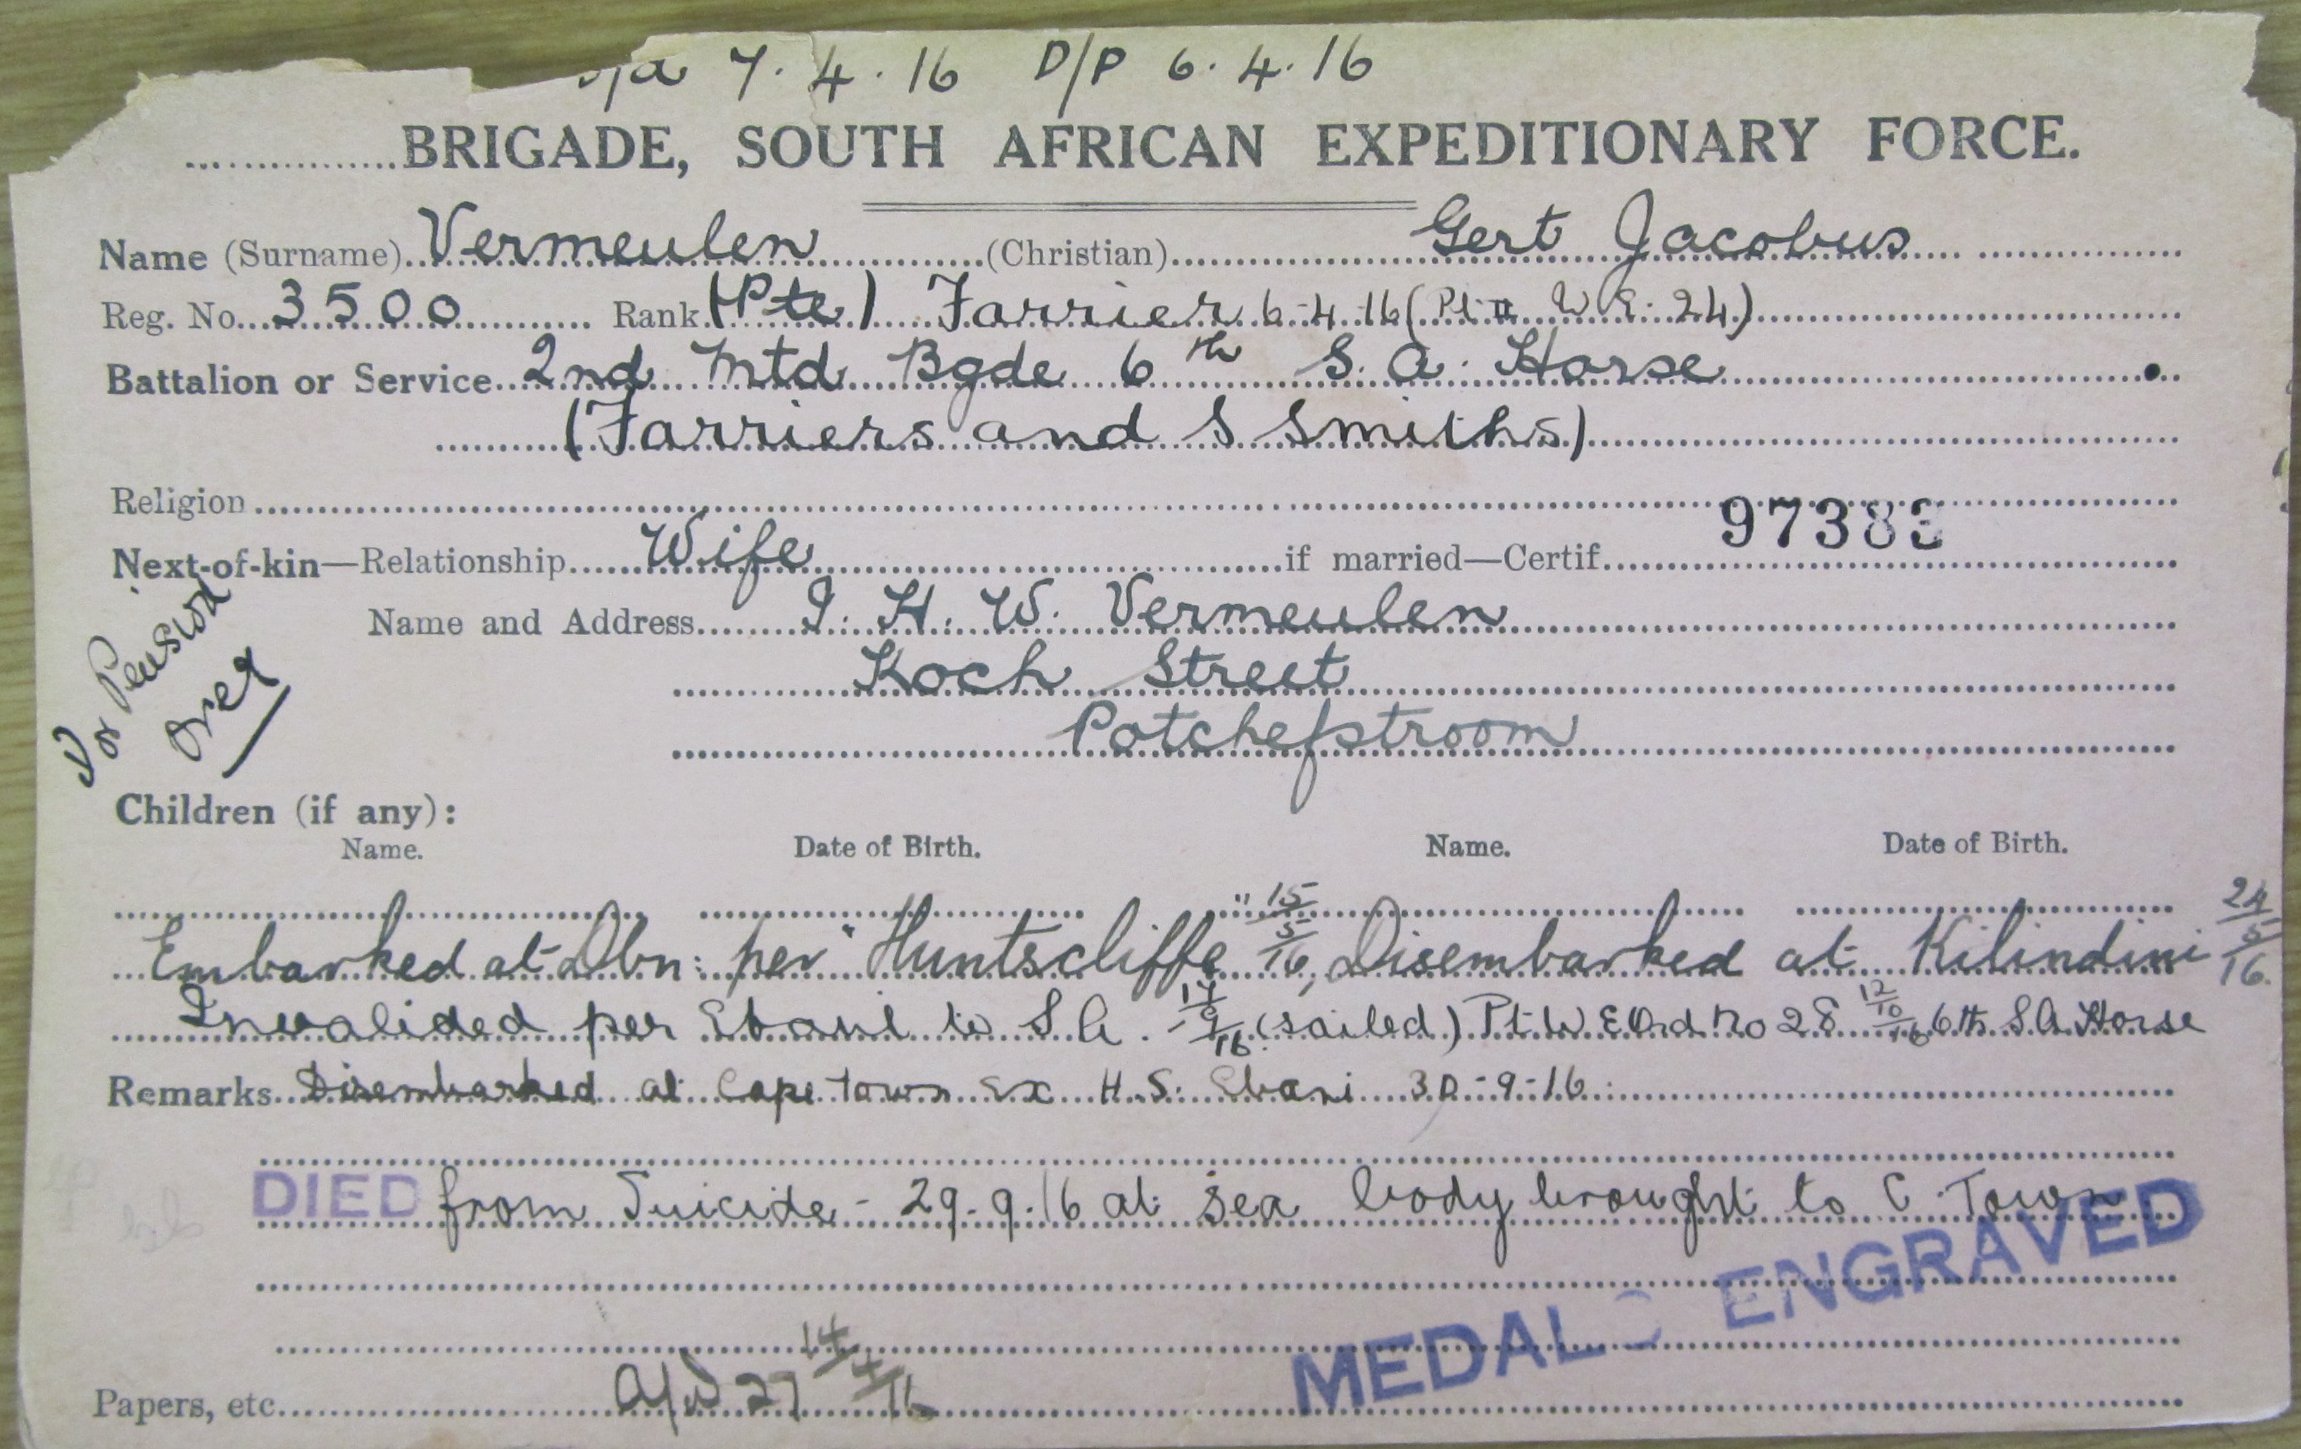 7.4.16 D/P 6.4.16
BRIGADE, SOUTH AFRICAN EXPEDITIONARY FORCE.
Name (Surname) Vermeulen (Christian) Gert Jacobus
Reg. No. 3500 Rank (Pte) Farrier 6.4.16 (Pt II W E. 24)
Battalion or Service 2nd Mtd Bgde 6th S.A. Horse
(Farriers and S Smiths)
Religion
97383
Next-of-kin—Relationship Wife if married—Certif.
Name and Address J. H. W. Vermeulen
Koch Street
Potchefstroom
For Pension
over
Children (if any):
Name. Date of Birth. Name. Date of Birth.
Embarked at Dbn: per "Huntscliffe" 15/5/16, Disembarked at Kilindini 24/5/16.
Invalided per Ebani to S A. 17/9/16 (sailed) Pt W E Ord No 28 12/10/16 6th S A Horse
Remarks Disembarked at Cape Town ex H.S. Ebani 30-9-16.
DIED from Suicide - 29.9.16 at sea body brought to C. Town
MEDALS ENGRAVED
Papers, etc. 27 14/4/16